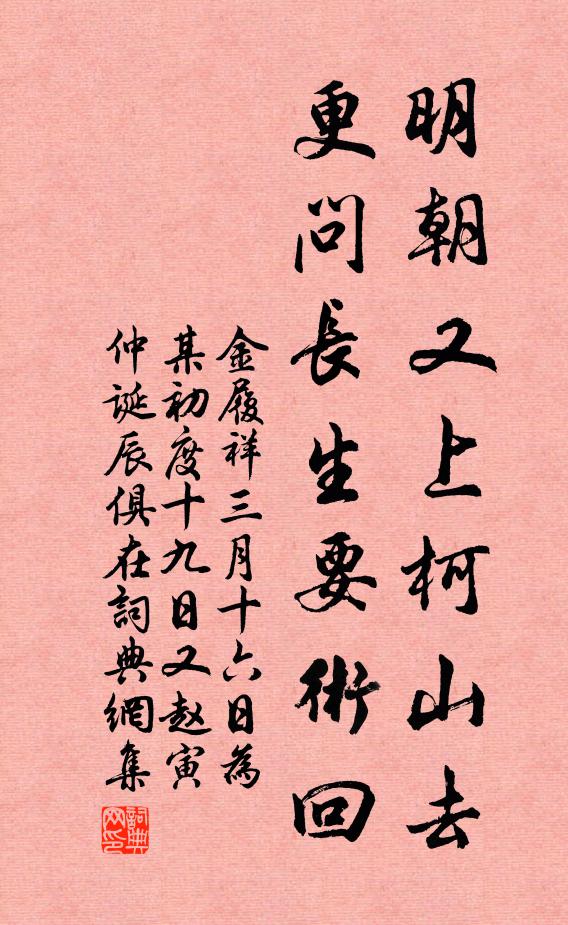 明朝又上柯山去
更問長生要術回
金履祥三月十六日為
某初度十九日又趙寅
仲誕辰俱在詞典網集
詞典
网印